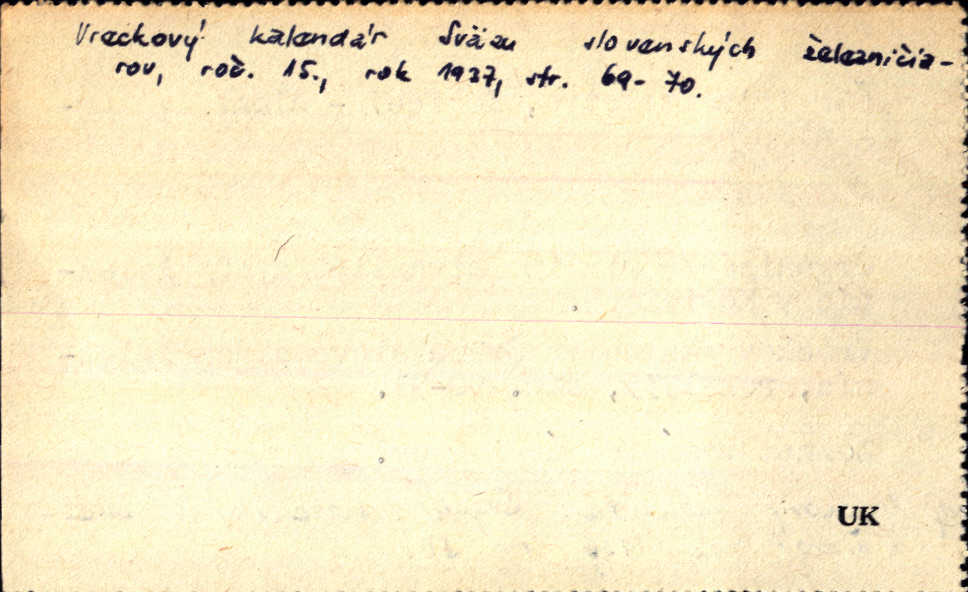 Vreckový kalendár Sväzu slovenských železničia-
rov, roč. 15., rok 1937, str. 69-70.
UK